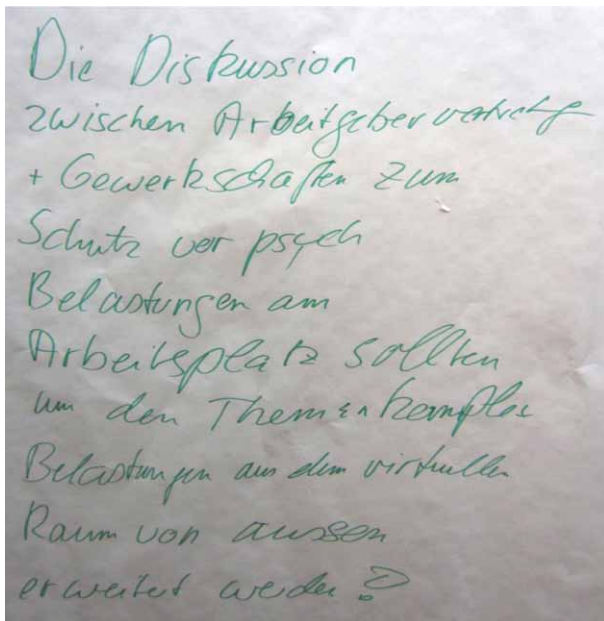 Die Diskussion
zwischen Arbeitgebervertretge
+ Gewerkschaften zum
Schutz vor psych
Belastungen am
Arbeitsplatz sollten
um den Themenkomplex
Belastungen aus dem virtuellen
Raum von aussen
erweitert werden?